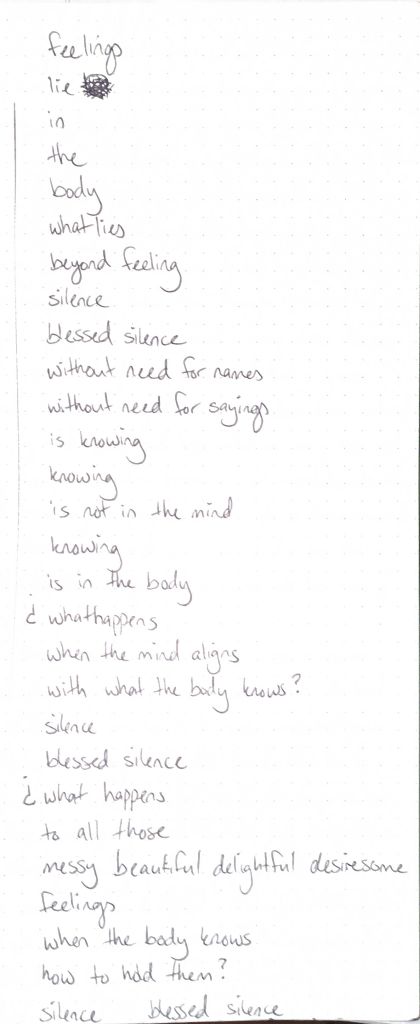 feelings
lie
in
the
body
what lies
beyond feeling
silence
blessed silence
without need for names
without need for sayings
is knowing
knowing
is not in the mind
knowing
is in the body
¿ what happens
when the mind aligns
with what the body knows?
silence
blessed silence
¿ what happens
to all those
messy beautiful delightful desiresome
feelings
when the body knows
how to hold them?
silence blessed silence